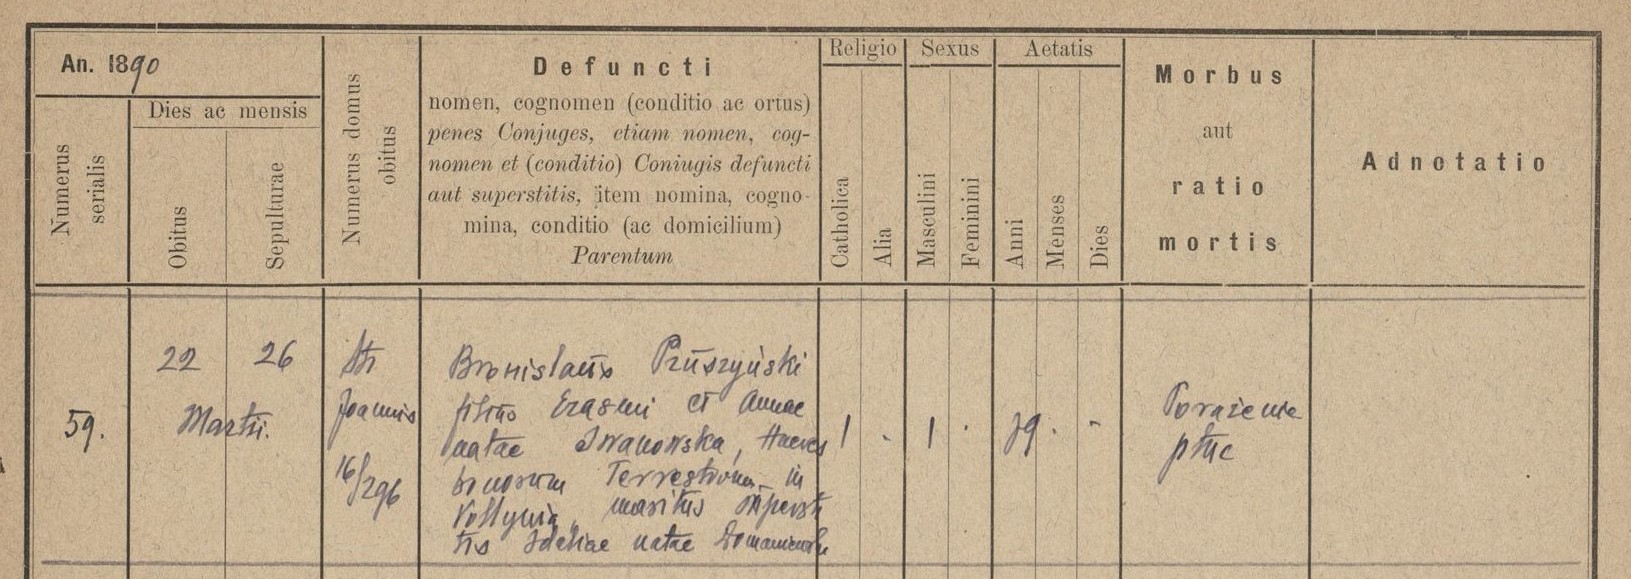 An. 1890
Numerus serialis
Dies ac mensis
Obitus
Sepulturae
Numerus domus obitus
Defuncti
nomen, cognomen (conditio ac ortus)
penes Conjuges, etiam nomen, cog-
nomen et (conditio) Coniugis defuncti
aut superstitis, item nomina, cogno-
mina, conditio (ac domicilium)
Parentum
Religio
Catholica
Alia
Sexus
Masculini
Feminini
Aetatis
Anni
Menses
Dies
Morbus
aut
ratio
mortis
Adnotatio
59.
22 26
Martii.
Joannis
16/296
Bronislaus Pruszyński
filius Erasmi et Annae
natae Iwanowska, Haeres
bonorum Terrestrium in
Volhynia, maritus supersti
tis Idaliae natae
1 - 1 -
79 - -
Porażenie
płuc